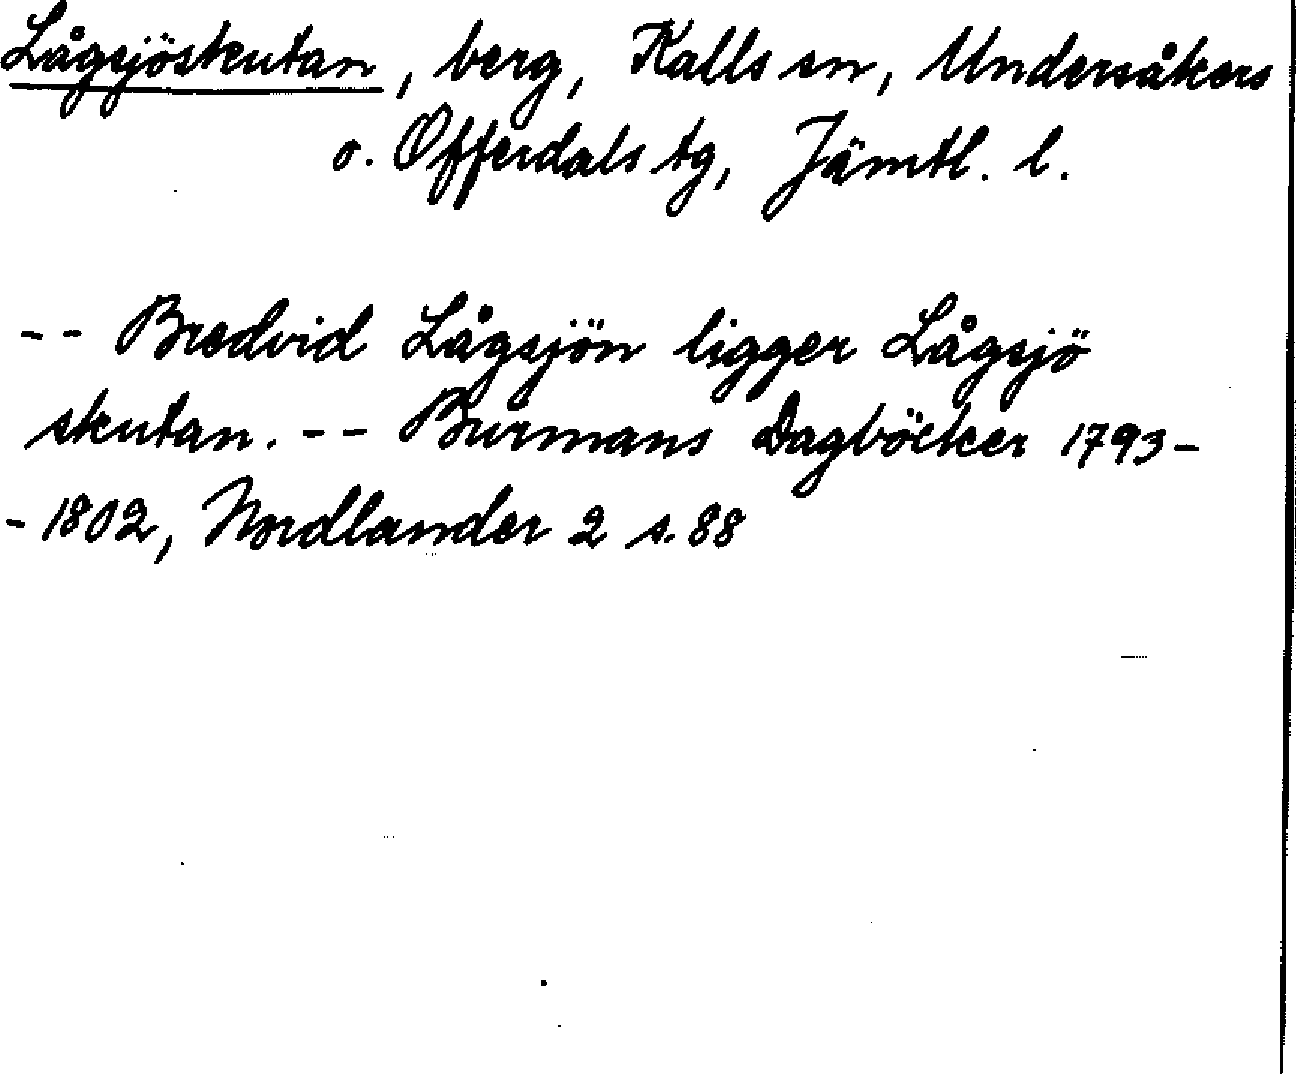 Lågsjöskutan, berg, Kalls sn, Undersåkers
o. Offerdals tg, Jämtl. l.
-- Bredvid Lågsjön ligger Lågsjö
skutan. -- Burmans Dagböcker 1793-
-1802, Nordlander 2 s. 88